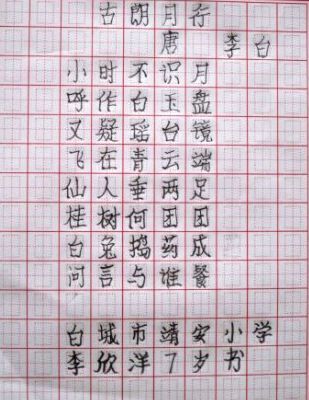 古朗月行
唐 李白
小时不识月
呼作白玉盘
又疑瑶台镜
飞在青云端
仙人垂两足
桂树何团团
白兔捣药成
问言与谁餐
白城市靖安小学
李欣洋7岁书